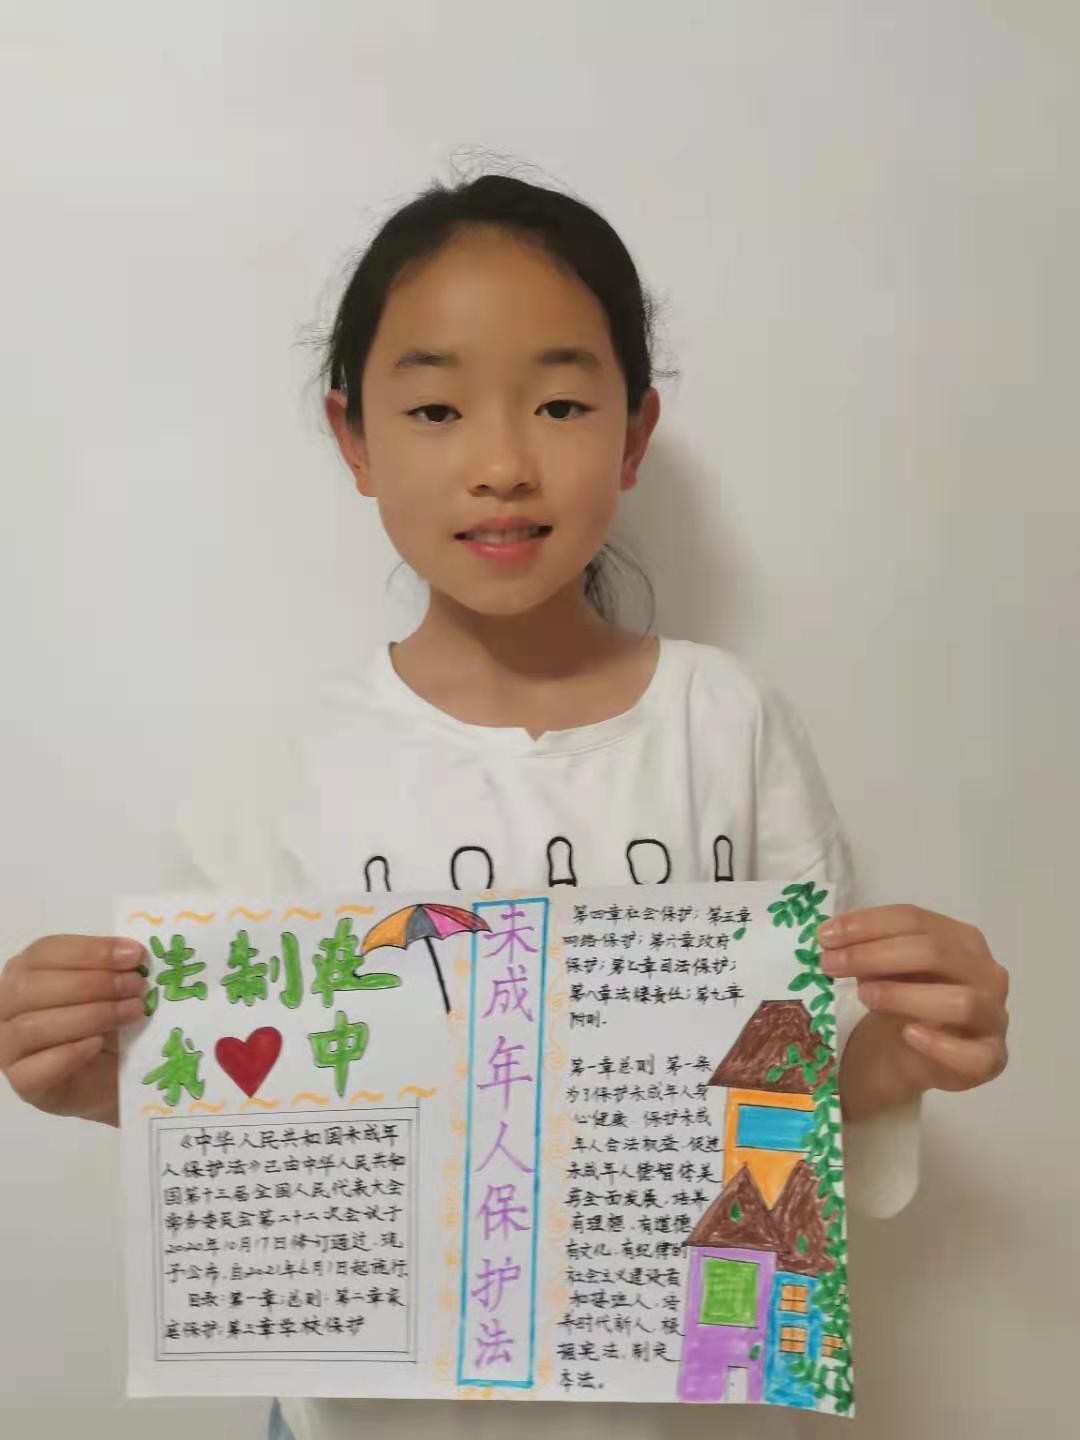 法制在
我 中
《中华人民共和国未成年
人保护法》已由中华人民共和
国第十三届全国人民代表大会
常务委员会第二十二次会议于
2020年10月17日修订通过,现
予公布,自2021年6月1日起施行.
目录:第一章;总则:第二章家
庭保护;第三章学校保护
未成年人保护法
第四章社会保护;第五章
网络保护;第六章政府
保护;第七章司法保护;
第八章法律责任;第九章
附则.
第一章总则 第一条
为了保护未成年人身
心健康,保护未成
年人合法权益,促进
未成年人德智体美
劳全面发展,培养
有理想,有道德
有文化,有纪律的
社会主义建设者
和接班人,培
养时代新人,根
据宪法,制定
本法。